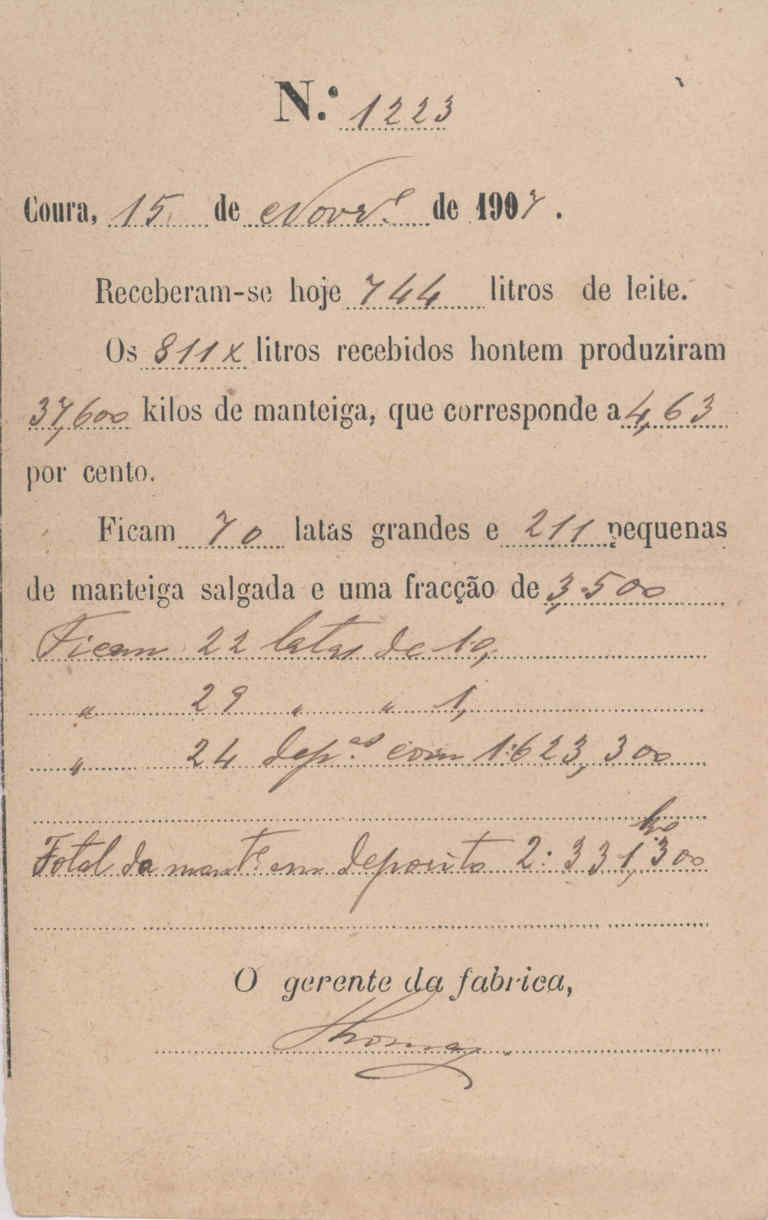 N.º 1223
Coura, 15 de Novr.º de 1907.
Receberam-se hoje 744 litros de leite.
Os 811 x litros recebidos hontem produziram
37,600 kilos de manteiga, que corresponde a 4,63
por cento.
Ficam 70 latas grandes e 211 pequenas
de manteiga salgada e uma fracção de 3,500
Ficam 22 latas de 10,
" 29 " " 1,
" 24 dep.os com 1:623,300
ko
Total da mant.ª em deposito 2:331,300
O gerente da fabrica,